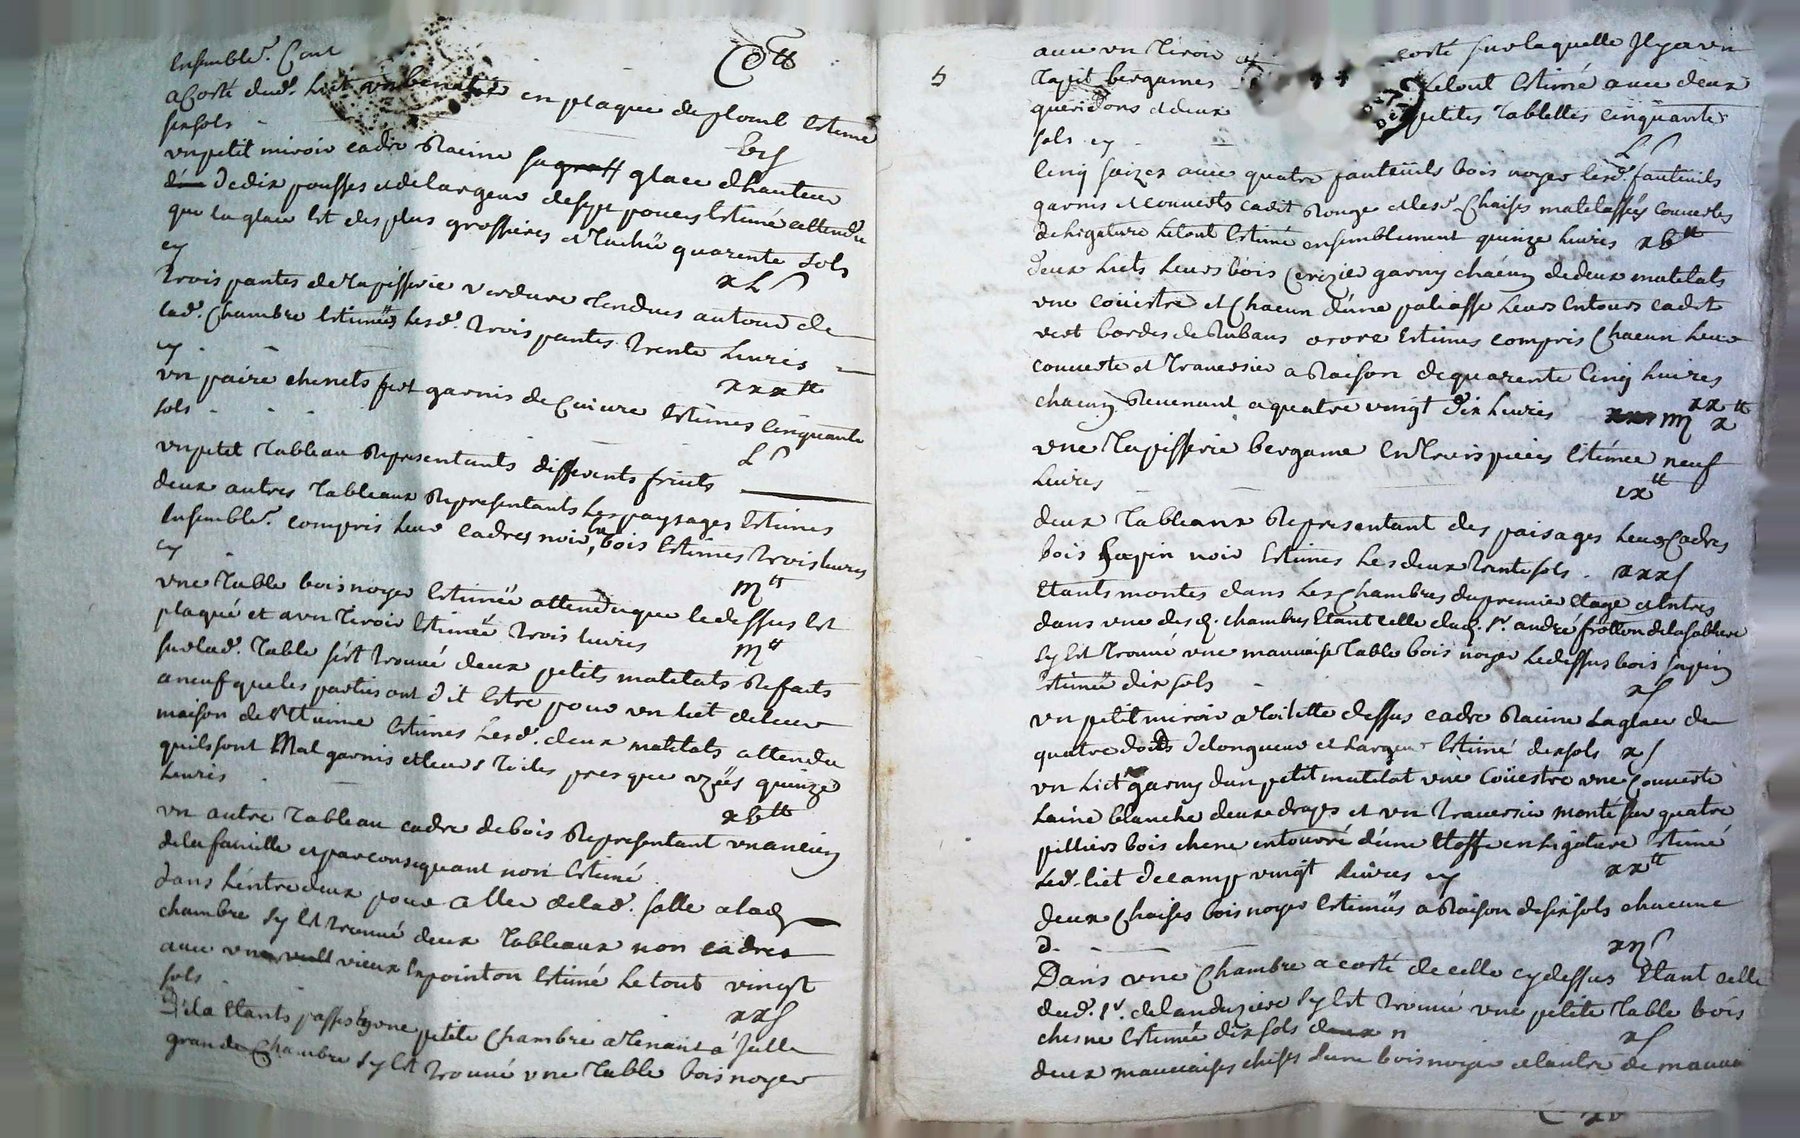 Ensemble. Cent
C tt
a Costé dud. Lict un benitié en plaque de plomb estimé
six sols
vis
un petit miroir cadre Racine sa glace dhauteur
de dix pousses et de largeur de sept pouces Estimé attendu
que la glace est des plus grossieres et Tachée quarente sols
cy
xLs
Trois pantes de Tapisserie verdure Tendues autour de
lad. Chambre Estimées lesd. Trois pantes Trente Livres
cy
xxxtt
un paire chenets fert garnis de Cuivre Estimes Cinquante
sols
Ls
un petit Tableau Representants differents fruits
deux autres Tableaux Representants Les paysages Estimes
Ensemble. compris leur cadres noir, bois Estimes Trois livres
cy
IIItt
une Table bois noyer Estimée attendu que le dessus Est
plaqué et a un Tiroir Estimée Trois livres
IIItt
sur lad. Table s'est Trouvé deux petits matelats Refaits
a neuf que les parties ont dit Estre pour un Lict de leur
maison de Estimes Lesd. deux matelats attendu
quils sont Mal garnis et leurs Toiles presque uzées quinze
Livres
xbtt
un autre Tableau cadre de bois Representant un ancien
de la famille et par consequant non Estimé
Dans L'entredeux pour aller de lad. salle a lad.
chambre sy Est trouvé deux Tableaux non cadres
avec un vieux Estimé Le tout vingt
sols
xxs
De la Etants passes en une petite Chambre a Tenant a Jcelle
grande Chambre sy Est Trouvé une Table bois noyer
5
avec un Tiroir et costé sur laquelle Il y a un
Tapit bergames Le tout Estimé avec deux
queridons et deux petites Tablettes Cinquante
sols cy
Ls
Cinq avec quatre fauteuils bois noyer lesd. fauteuils
garnis et couverts cadit Rouge et les Chaises matelassées couvertes
de ligature Le tout Estimé ensemblement quinze livres xbtt
Deux Licts Leurs bois Cerizier garny chacun de deux matelats
une coüestre et Chacun d'une paliasse Leurs Entours cadit
vert bordes de Rubans Estimes compris Chacun Leur
couverte et Traversier a Raison de quarente Cinq Livres
chacun Revenant a quatre vingt Dix Livres IIII xx x tt
une Tapisserie bergame En Trois pieces Estimée neuf
Livres
ixtt
deux Tableaux Representant des paisages Leur Cadres
bois sapin noir Estimes Les deux Trente sols xxxs
Etants montes dans Les Chambres du premier Etage et Entres
dans une desd. chambres Etant celle dud. Sr. andré frotton de la sabliere
sy Est Trouvé une mauvaise Table bois noyer Le dessus bois sapin
Estimée dix sols
xs
un petit miroir a Toilette dessus cadre Racine La glace de
quatre doits de longueur et Largeur Estimé dix sols xs
un Lict garny d'un petit matelat une Coüestre une Couverte
Laine blanche deux draps et un Traversier monté sur quatre
pilliers bois chene entourré d'une Etoffe en Ligature Estimé
Led. Lict de camp vingt Livres cy
xxtt
deux Chaises bois noyer Estimées a Raison de six sols chacune
d.
xIIs
Dans une Chambre a costé de celle cy dessus Etant celle
dud. Sr. de sy Est Trouvé une petite Table bois
chesne Estimée dix sols
xs
deux mauvaises l'une bois noyer et l'autre de mauvai